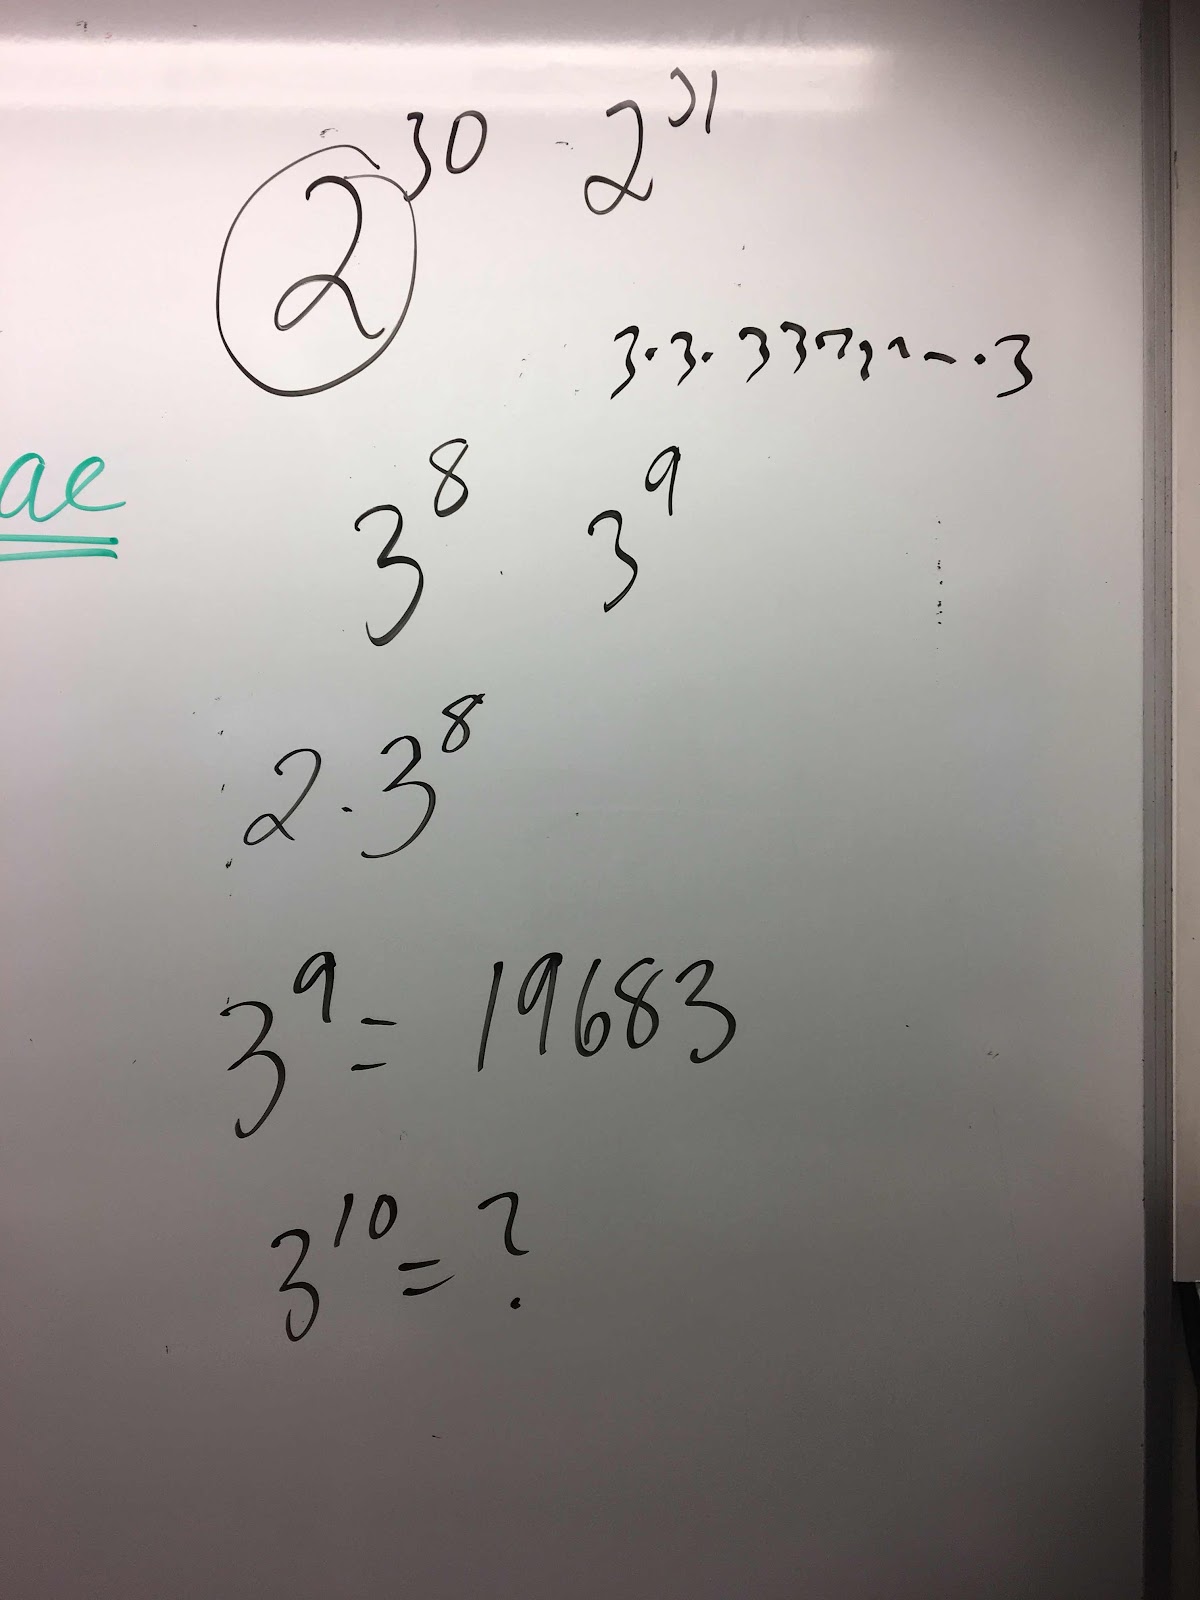 2^30 2^31
3·3·33 ·3
ae
3^8 3^9
2·3^8
3^9 = 19683
3^10 = ?